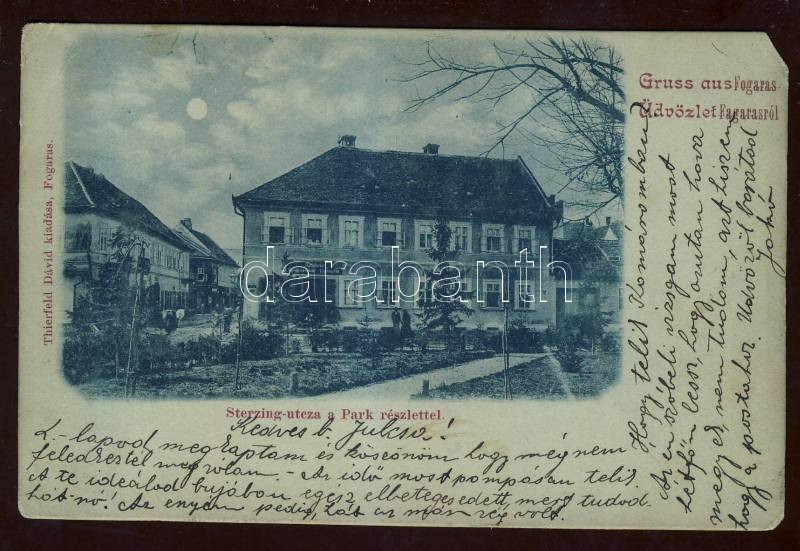 Gruss aus Fogaras
Üdvözlet Fagarasról
Thierfeld Dávid kiadása, Fogaras.
darabanth
Sterzing-utcza a Park részlettel.
Kedves b. Julcsa!
L.-lapod megkaptam és köszönöm hogy még nem
feledkeztél meg rolam. - Az idő most pompásan telik
A te ideálod bujában egész elbetegesedett, mert tudod-
hát nő! Az enyém pedig, hát az már rég volt.
Hogy telik Komáromban?
Az én szóbeli vizsgám most
hétfőn lesz, hogy azután hova
megyek nem tudom, azt hiszem
hogy a postahoz. Üdvözöl barátod